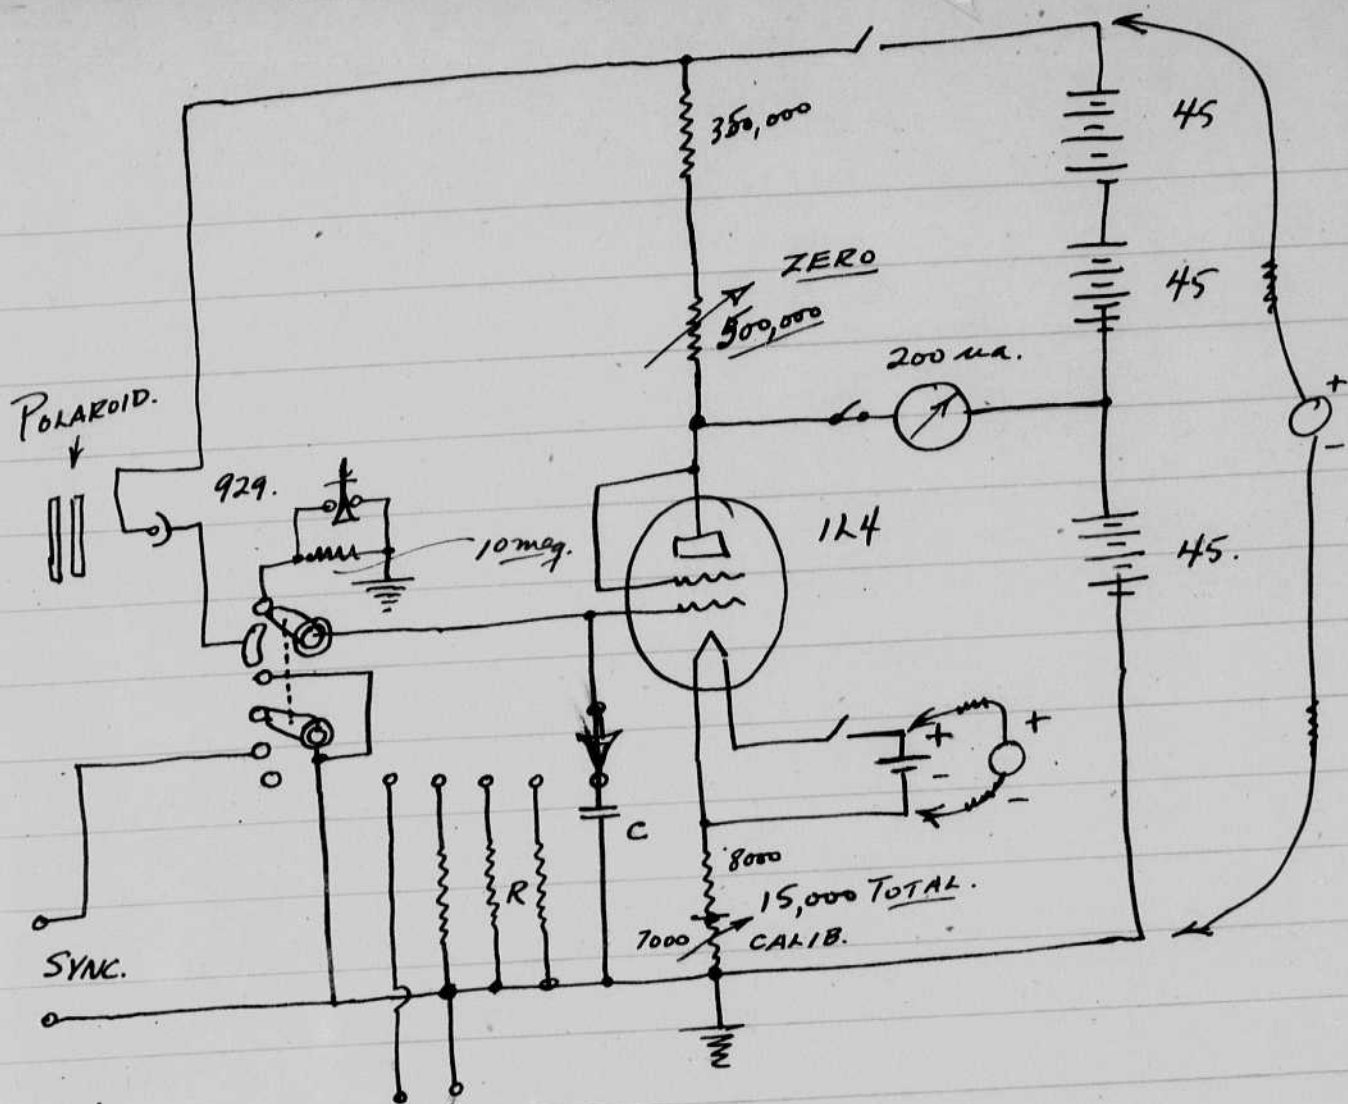 350,000
45
ZERO
500,000
45
200 ua.
+
-
POLAROID.
929.
10 meg.
1L4
45.
+
-
+
-
C
8000
R
15,000 TOTAL.
7000
CALIB.
SYNC.